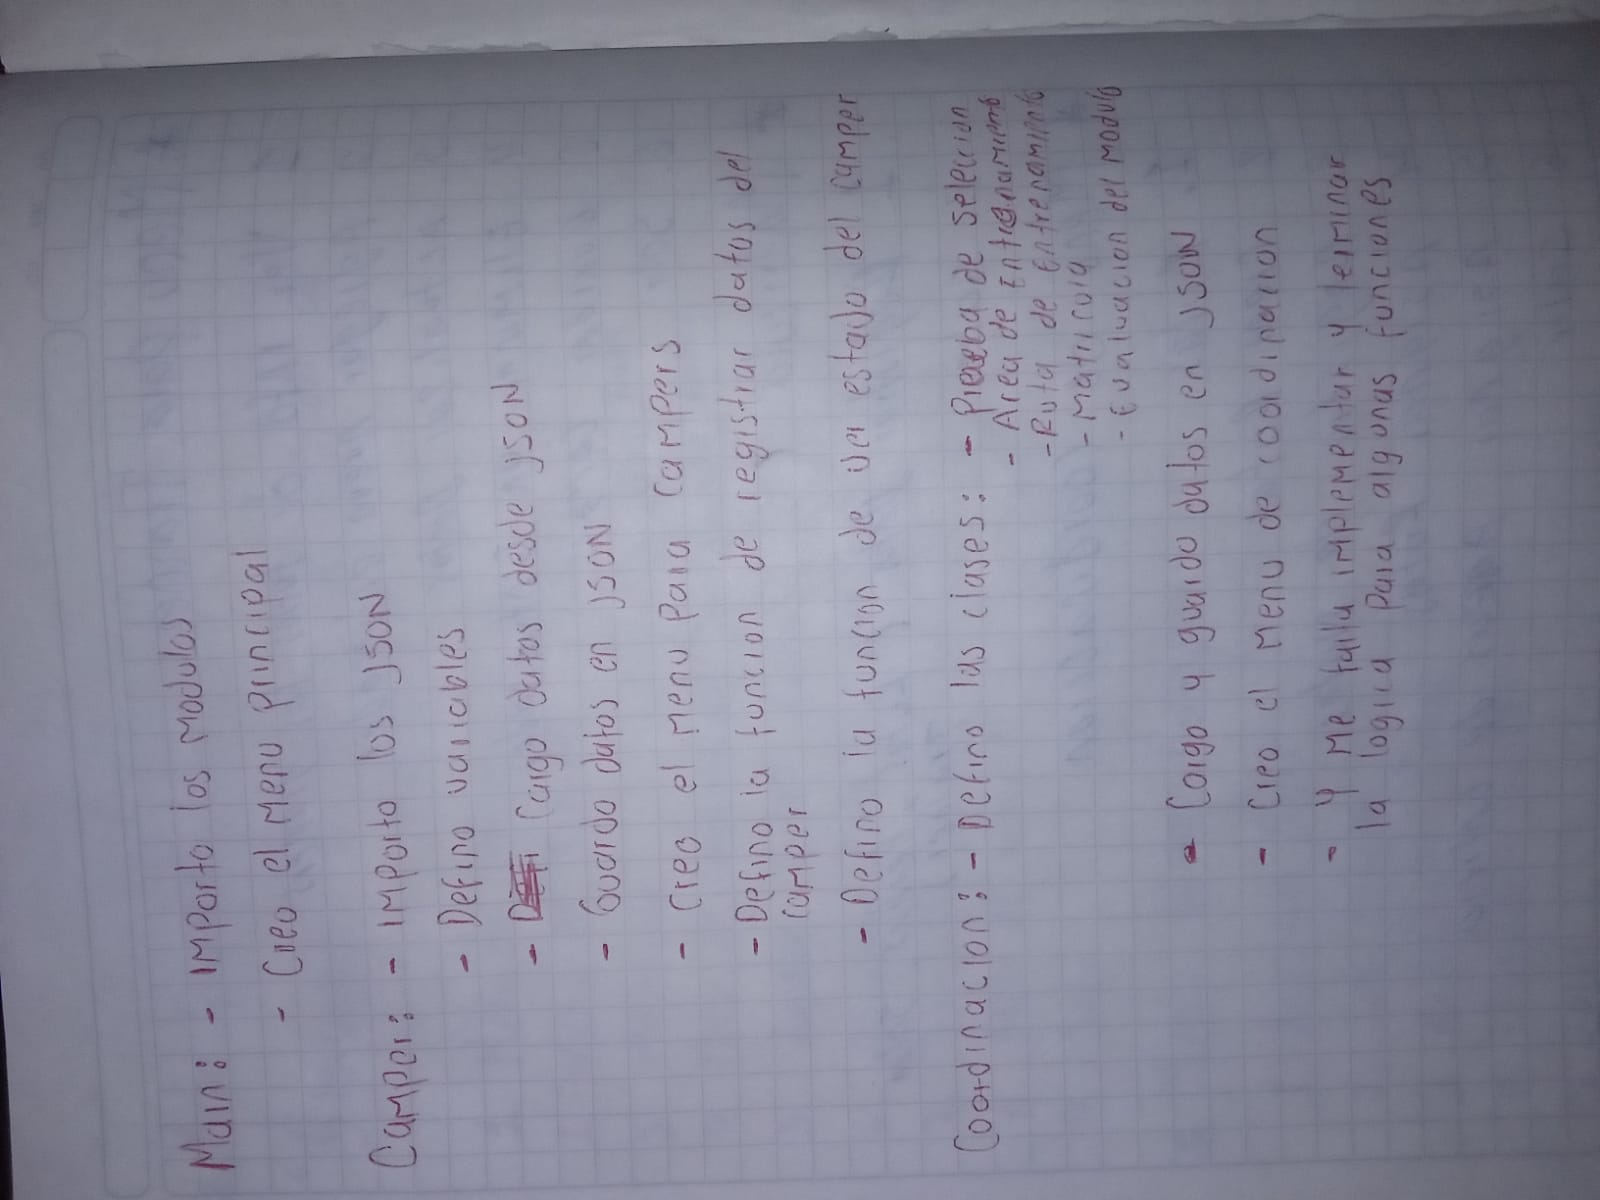 Main: - Importo los modulos
- Creo el menu principal
Camper: - Importo los JSON
- Defino variables
- Cargo datos desde JSON
- Guardo datos en JSON
- Creo el menu para campers
- Defino la funcion de registrar datos del
camper
- Defino la funcion de ver estado del camper
Coordinacion: - Defino las clases: - Prueba de seleccion
- Area de Entrenamiento
- Ruta de entrenamiento
- Matricula
- Evaluacion del modulo
- Cargo y guardo datos en JSON
- Creo el menu de coordinacion
- Y me falta implementar y terminar
la logica para algunas funciones